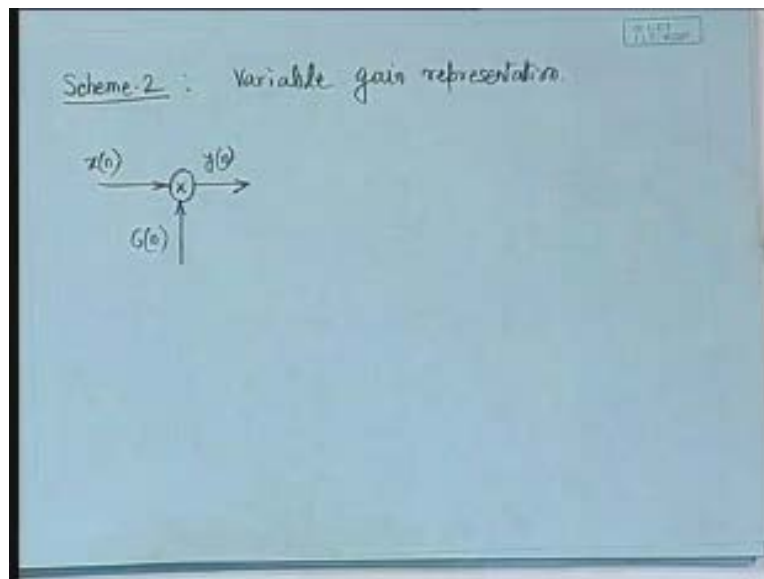 Scheme-2 : Variable gain representation.
x(n) y(n)
G(n)